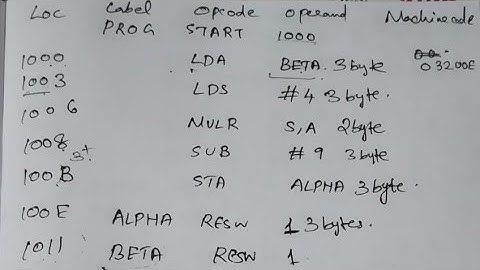 Loc Label Opcode Operand Machine code
PROG START 1000
1000 LDA BETA. 3 byte 03200E
1003 LDS #4 3 byte.
1006 MULR S,A 2 byte
1008 3+ SUB #9 3 byte
100B STA ALPHA 3 byte.
100E ALPHA RESW 1 3 bytes.
1011 BETA RESW 1